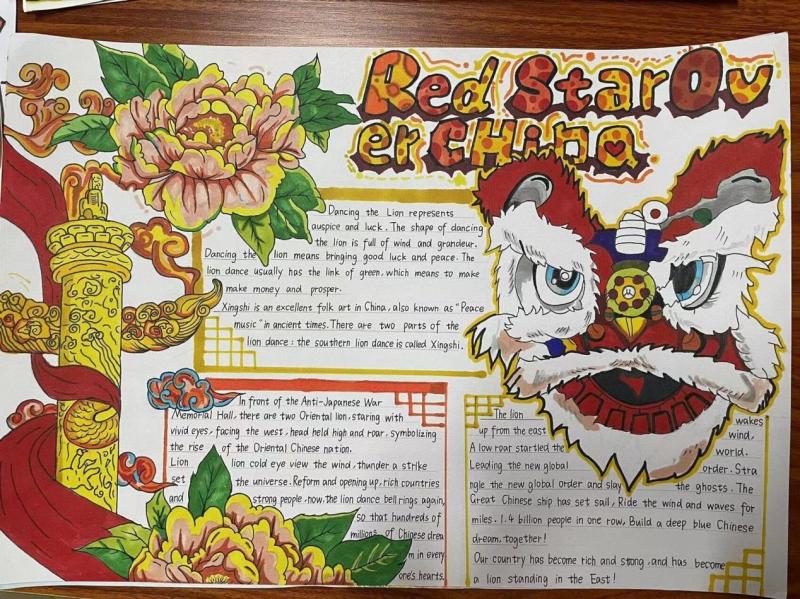 Red Star Ov
er CHina
Dancing the Lion represents
auspice and luck. The shape of dancing
the lion is full of wind and grandeur.
Dancing the lion means bringing good luck and peace. The
lion dance usually has the link of green, which means to make
make money and prosper.
Xingshi is an excellent folk art in China, also known as "Peace
music" in ancient times. There are two parts of the
lion dance: the southern lion dance is called Xingshi.
In front of the Anti-Japanese War
Memorial Hall, there are two Oriental lion, staring with
vivid eyes, facing the west, head held high and roar, symbolizing
the rise of the Oriental Chinese nation.
Lion lion cold eye view the wind, thunder a strike
set the universe. Reform and opening up, rich countries
and strong people, now, the lion dance bell rings again,
so that hundreds of
millions of Chinese drea
m in every
one's hearts.
The lion wakes
up from the east wind,
A low roar startled the world.
Leading the new global order. Stra
ngle the new global order and slay the ghosts. The
Great Chinese ship has set sail, Ride the wind and waves for
miles. 1.4 billion people in one row, Build a deep blue Chinese
dream, together!
Our country has become rich and stong, and has become
a lion standing in the East!